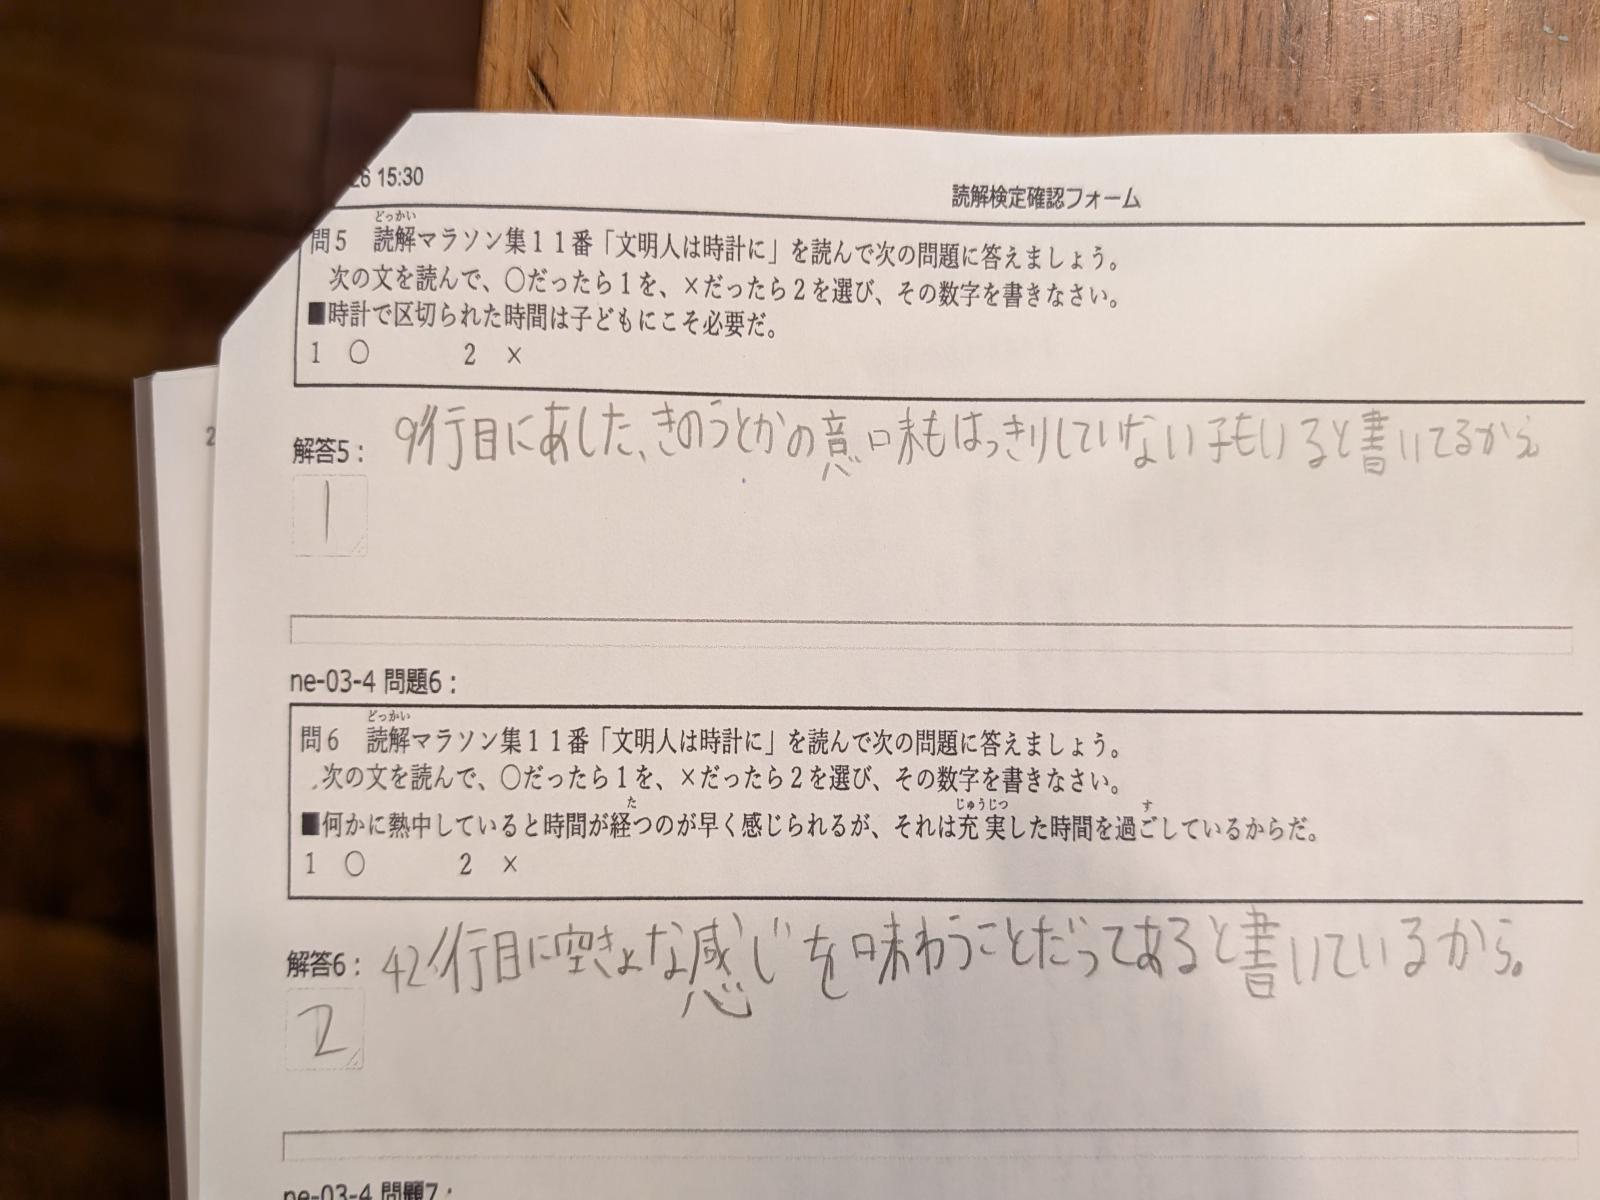 26 15:30
読解検定確認フォーム
どっかい
問5 読解マラソン集11番「文明人は時計に」を読んで次の問題に答えましょう。
次の文を読んで、○だったら1を、×だったら2を選び、その数字を書きなさい。
■時計で区切られた時間は子どもにこそ必要だ。
1 ○ 2 ×
2
解答5: 9行目にあした、きのうとかの意味もはっきりしていない子もいると書いてるから
1
ne-03-4 問題6:
どっかい
問6 読解マラソン集11番「文明人は時計に」を読んで次の問題に答えましょう。
次の文を読んで、○だったら1を、×だったら2を選び、その数字を書きなさい。
た じゅうじつ す
■何かに熱中していると時間が経つのが早く感じられるが、それは充実した時間を過ごしているからだ。
1 ○ 2 ×
解答6: 42行目に空きょな感じを味わうことだってあると書いているから。
2
ne-03-4 問題7: